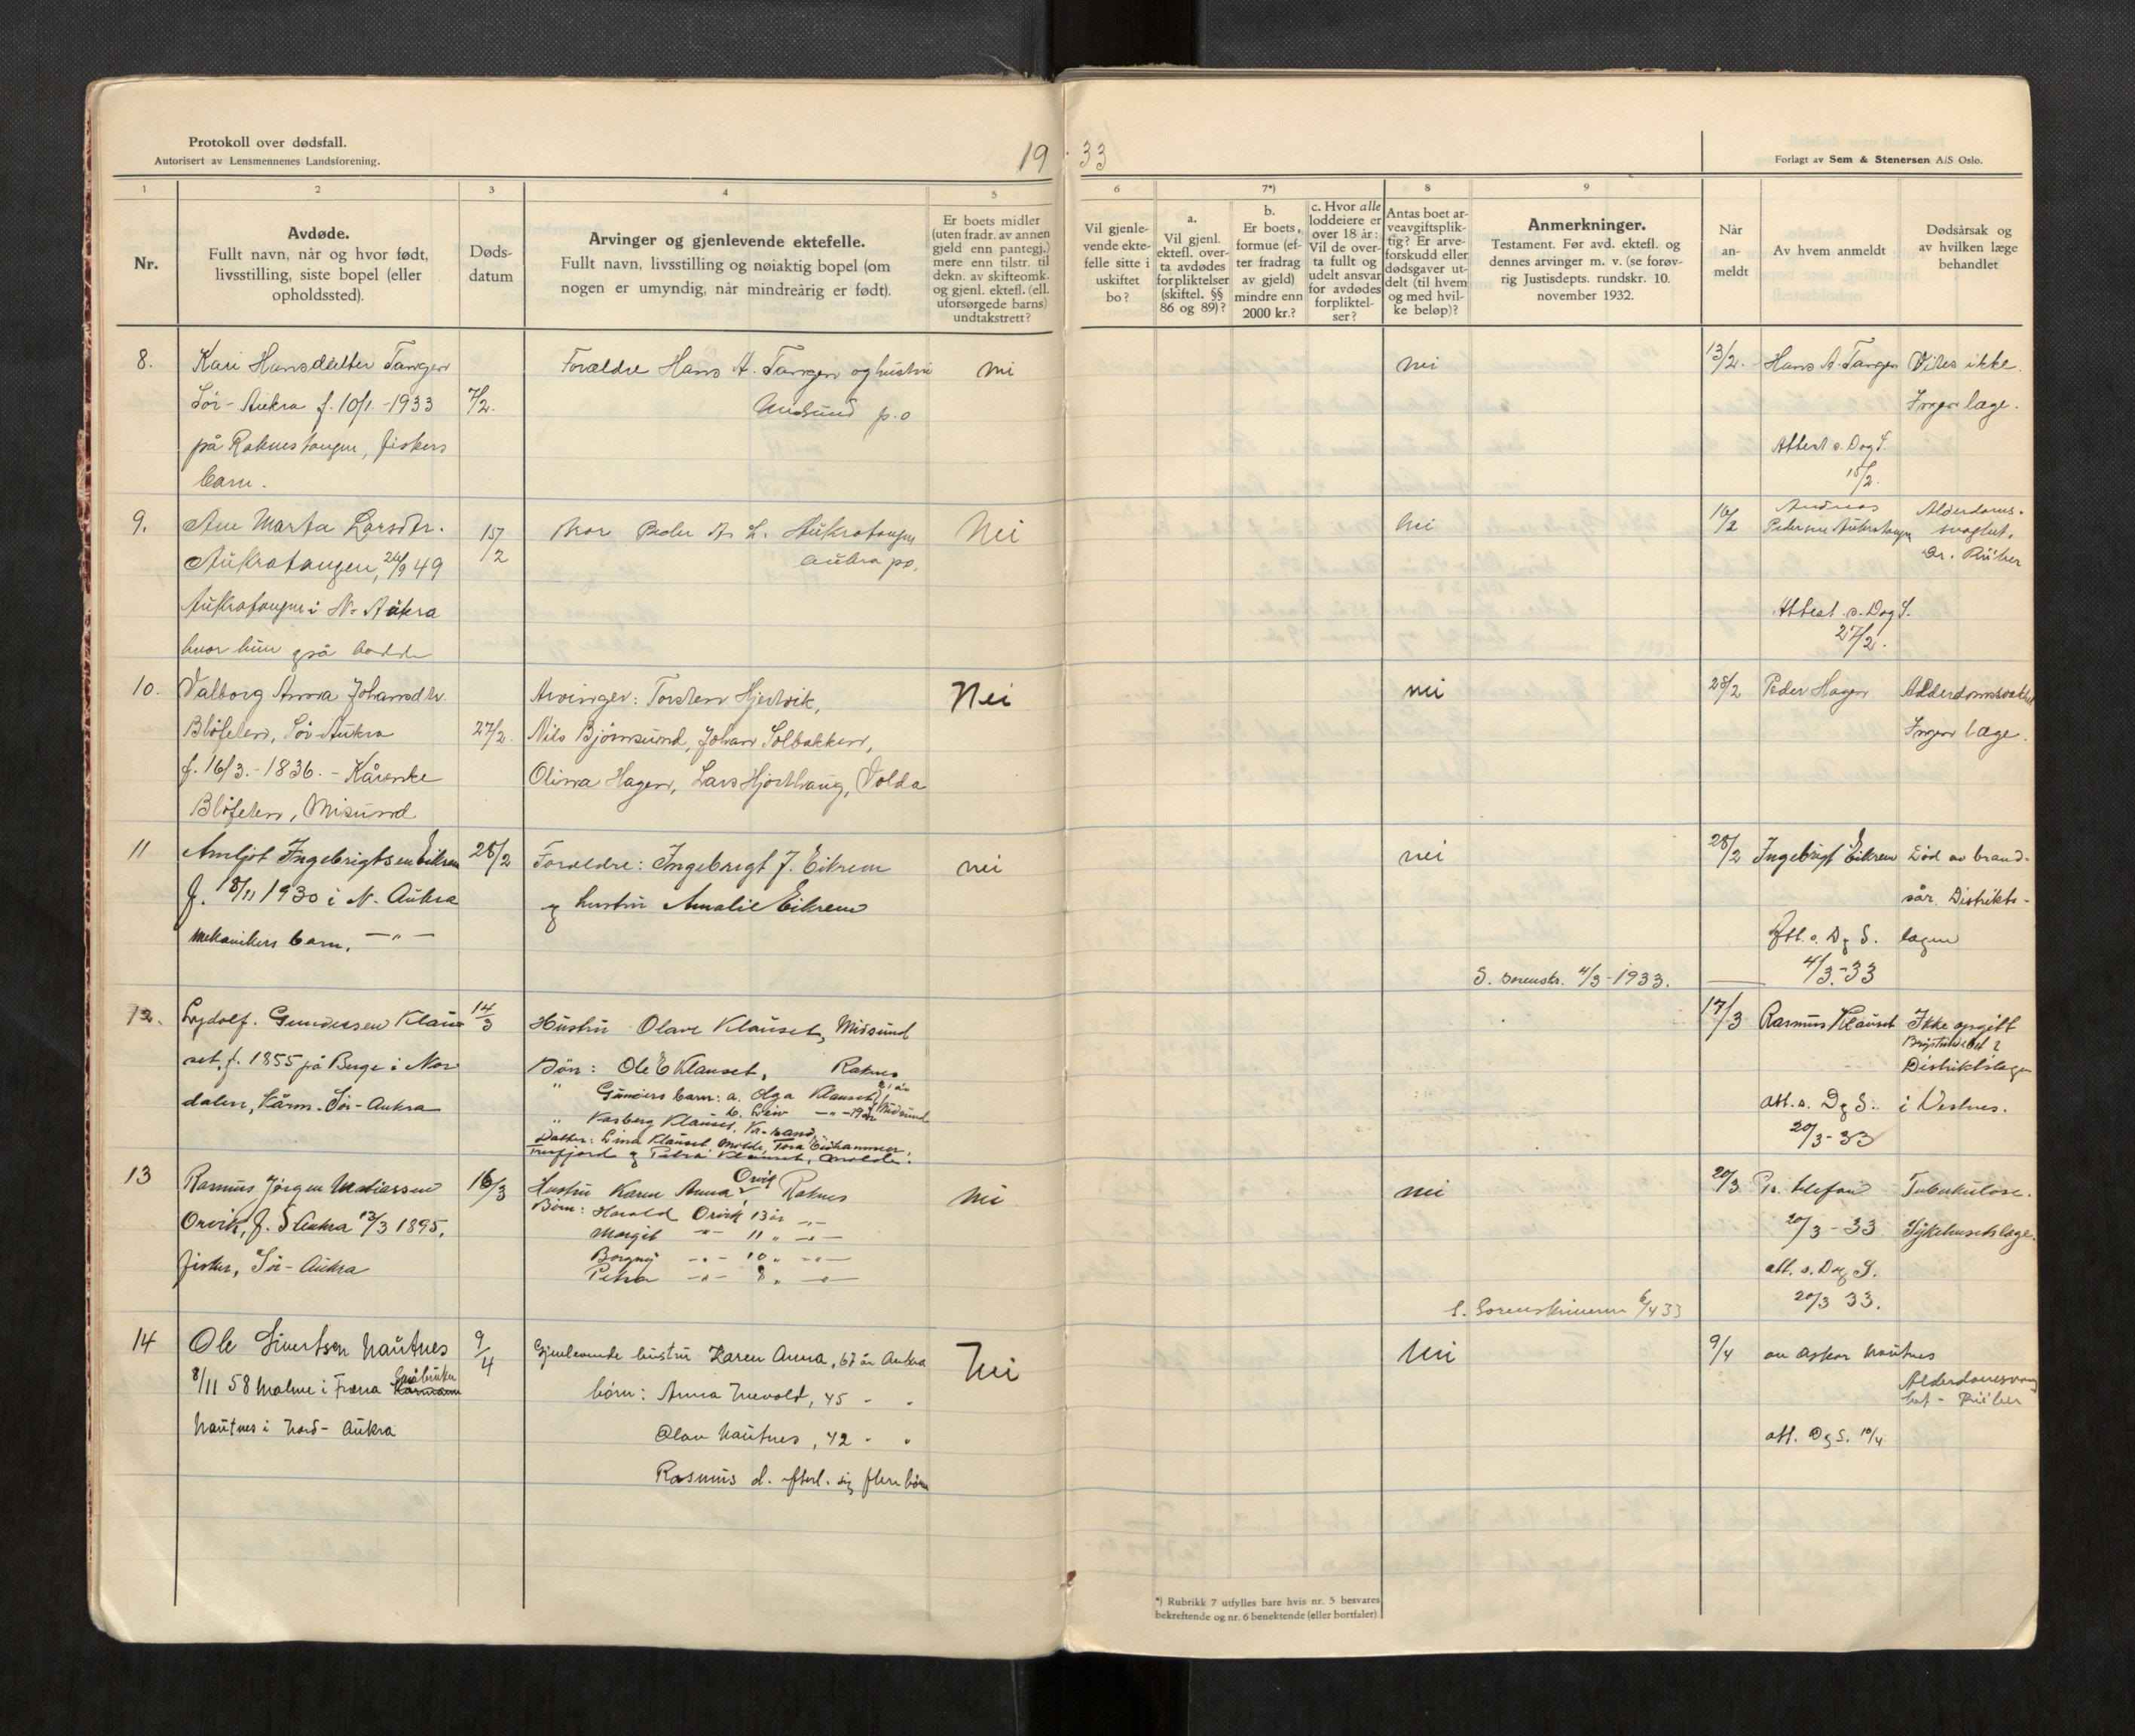 Protokoll over dødsfall.
Autorisert av Lensmennenes Landsforening.
19 33
Forlagt av Sem & Stenersen A/S Oslo.
1
2
3
4
5
6
7*)
8
9
Nr.
Avdøde.
Fullt navn, når og hvor født,
livsstilling, siste bopel (eller
opholdssted).
Døds-
datum
Arvinger og gjenlevende ektefelle.
Fullt navn, livsstilling og nøiaktig bopel (om
nogen er umyndig, når mindreårig er født).
Er boets midler
(uten fradr. av annen
gjeld enn pantegj.)
mere enn tilstr. til
dekn. av skifteomk.
og gjenl. ektef. (ell.
uforsørgede barns)
undtakstrett?
Vil gjenle-
vende ekte-
felle sitte i
uskiftet
bo?
a.
Vil gjenl.
ektefl. over-
ta avdødes
forpliktelser
(skiftel. §§
86 og 89)?
b.
Er boets
formue (ef-
ter fradrag
av gjeld)
mindre enn
2000 kr.?
c. Hvor alle
loddeiere er
over 18 år:
Vil de over-
ta fullt og
udelt ansvar
for avdødes
forpliktel-
ser?
Antas boet ar-
veavgiftsplik-
tig? Er arve-
forskudd eller
dødsgaver ut-
delt (til hvem
og med hvil-
ke beløp)?
Anmerkninger.
Testament. Før avd. ektefl. og
dennes arvinger m. v. (se forøv-
rig Justisdepts. rundskr. 10.
november 1932.
Når
an-
meldt
Av hvem anmeldt
Dødsårsak og
av hvilken læge
behandlet
8.
Kari Hansdatter Tangen
Sör-Aukra f. 10/1-1933
på Raknestangen, fiskers
barn.
7/2.
Forældre Hans A. Tangen og hustru
Midsund p.o
nei
nei
13/2.
Hans A. Tangen
Vites ikke.
Ingen læge.
Attest s. Dog S.
15/2.
9.
Ane Marta Larsdtr.
Aukratangen, 26/9 49
Aukratangen i N. Aukra
hvor hun også bodde
15/2
Bror Peder A. L. Aukratangen
Aukra po.
Nei
nei
16/2
Andreas
Pedersen Aukratangen
Alderdoms-
svaghet.
Dr. Rüber
Attest s. Dog S.
27/2.
10.
Valborg Anna Johansdtr.
Blöfelen, Sör-Aukra
f. 16/3.-1836. - Kårenke
Blöfelen, Misund
27/2.
Arvinger: Torsten Hjertvik,
Nils Björnsund, Johan Solbakken,
Olina Hagen, Lars Hjorthaug, Volda
Nei
nei
28/2
Peder Hagen
Alderdomssvakhet
Ingen læge.
11
Arnljot Ingebrigtsen Eikrem
f. 18/11 1930 i N. Aukra
mekanikers barn. -"-
28/2
Foreldre: Ingebrigt J. Eikrem
og hustru Amalie Eikrem
nei
nei
28/2
Ingebrigt Eikrem
Död av brand-
sår. Distrikts-
lægen
Att. s. D og S.
4/3-33
S. sorenskr. 4/3-1933.
12.
Lydolf. Gundersen Klau-
set, f. 1855 på Berge i Nor
dalen, Kårm. Sör-Aukra
14/3
Hustru Olave Klauset, Midsund
Börn: Ole E Klauset, Raknes
" Gunders barn: a. Olga Klauset 21 år
b. Leiv -"- 19 år Midsund
" Kasberg Klauset, Kr.sand
Datter: Lina Klauset Molde, Tora Eidhammer,
Tresfjord og Petra Klauset, Molde.
17/3
Rasmus Klauset
Ikke opgitt
Distriktslægen
i Vestnes.
att. s. D og S.
20/3-33
13
Rasmus Jörgen Mathiassen
Orvik, f. S Aukra 12/3 1895,
fisker, Sör-Aukra
16/3
Hustru Karen Anna Orvik, Raknes
Börn: Harald Orvik 13 år -"-
Margit -"- 11 " -"-
Borgny -"- 10 " -"-
Petra -"- 8 " -"-
nei
nei
20/3
Pr. telefon
20/3-33
Tuberkulose.
Sykehuslæge.
att. s. Dog S.
20/3 33.
S. Sorenskriveren 6/4 33
14
Ole Sivertsen Nautnes
8/11 58 Malme i Fræna Kårmann Småbruker
Nautnes i Nord-Aukra
9/4
Gjenlevende hustru Karen Anna, 67 år Aukra
börn: Anna Trevold, 45 " "
Olav Nautnes, 42 " "
Rasmus d. efterl. sig flere börn
Nei
Nei
9/4
av Askor Nautnes
Alderdomssvag
het - Rüber
att. D og S. 10/4
*) Rubrikk 7 utfylles bare hvis nr. 5 besvares
bekreftende og nr. 6 benektende (eller bortfaler)